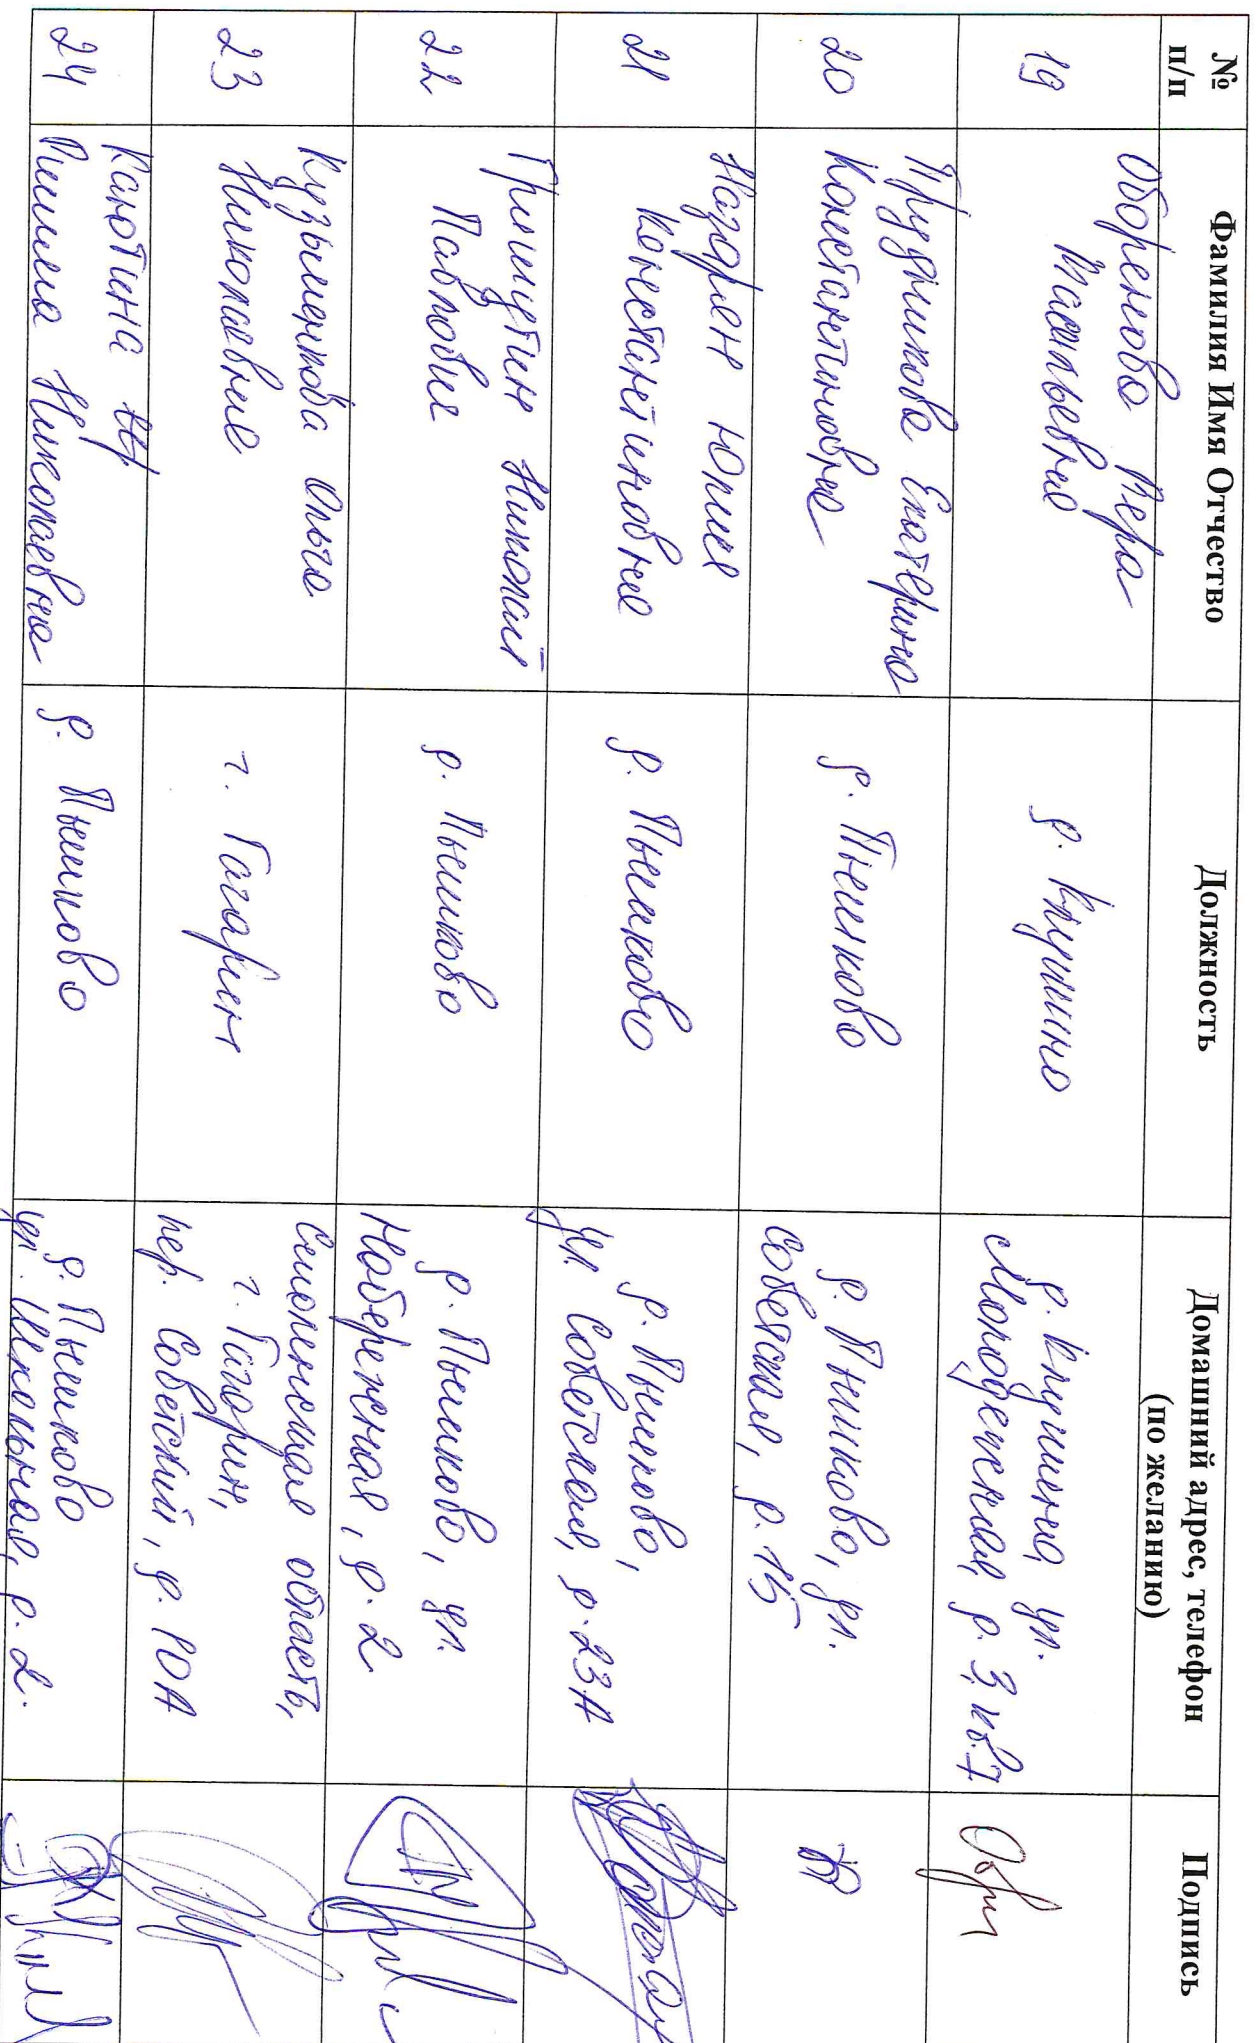 № п/п
Фамилия Имя Отчество
Должность
Домашний адрес, телефон
(по желанию)
Подпись
19
Оборенова Вера
Васильевна
д. Клушино
д. Клушино, ул.
Молодежная, д. 3, кв. 7
20
Прудникова Екатерина
Константиновна
д. Пышково
д. Пышково, ул.
Советская, д. 15
21
Назарен Юлия
Константиновна
д. Пышково
д. Пышково,
ул. Советская, д. 23А
22
Николай
Павлович
д. Пышково
д. Пышково, ул.
Набережная, д. 2
23
Кузьменкова Ольга
Николаевна
г. Гагарин
Смоленская область,
г. Гагарин,
пер. Советский, д. 10А
24
Канотина
Римма Николаевна
д. Пышково
д. Пышково
ул. Школьная, д. 2.